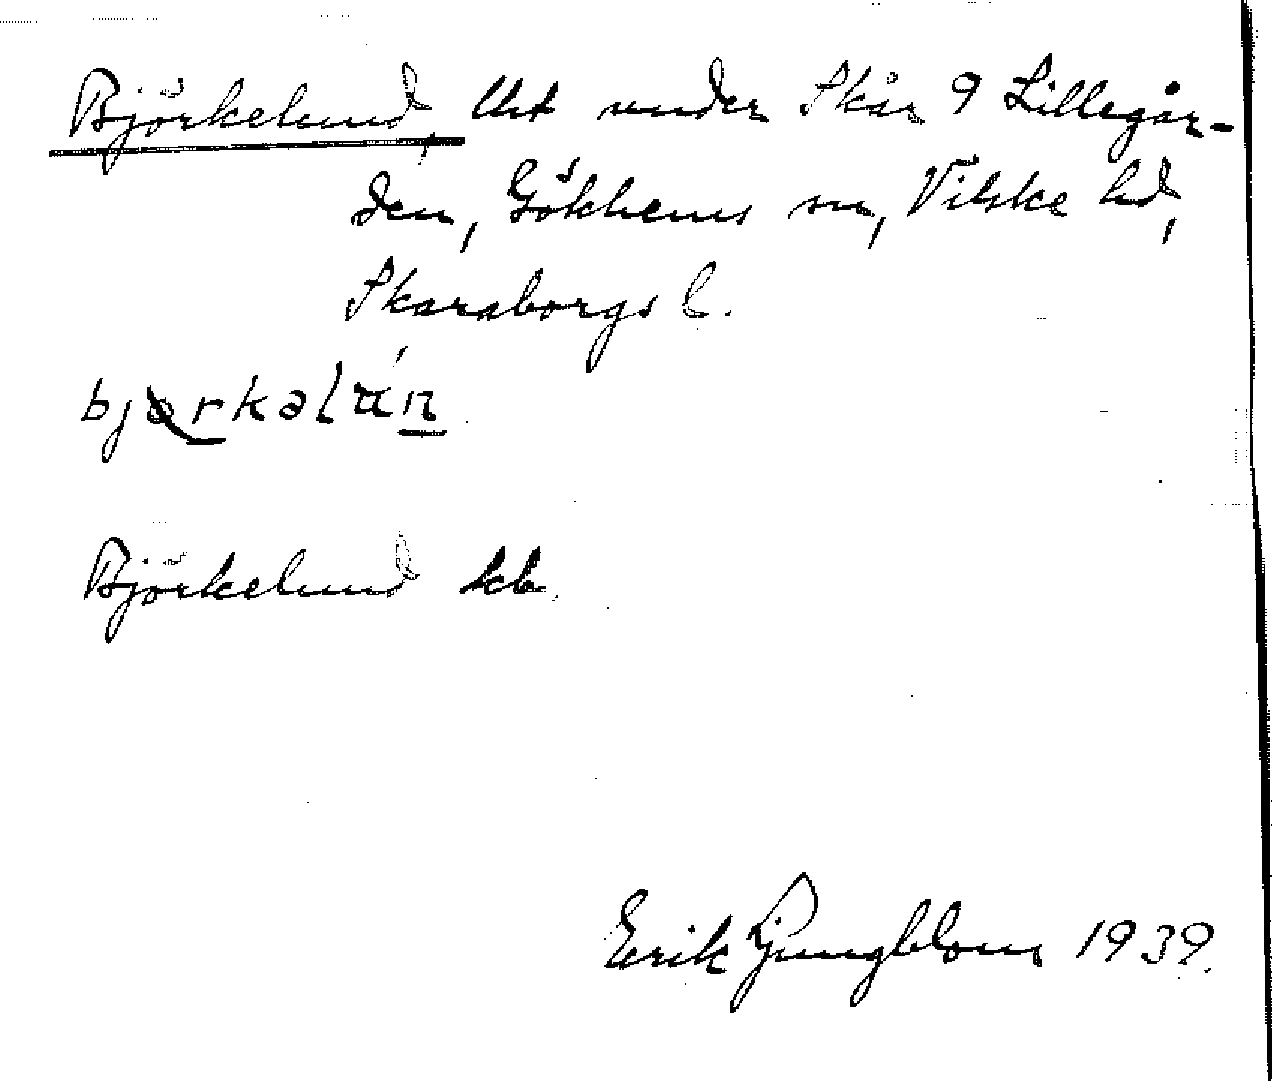 Björkelund, Urt under Skår 9 Lillegår-
den, Gökhems sn, Vilske hd,
Skaraborgs l.
bjərkəlún
Björkelund kb.
Erik Ljungblom 1939.